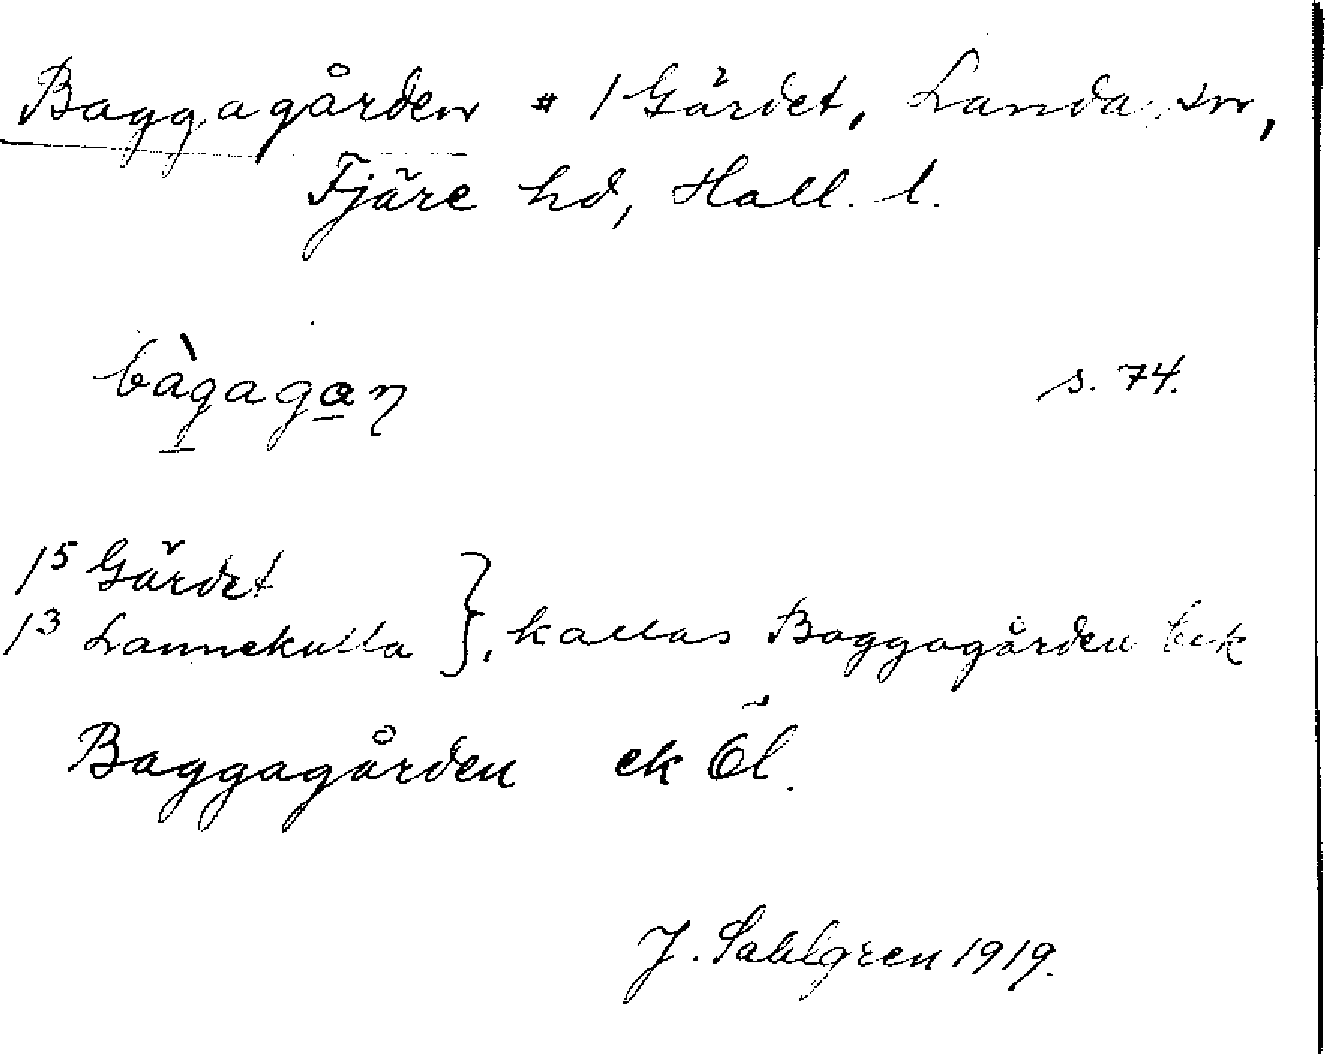 Baggagården # / Gärdet, Landa sn,
Fjäre hd, Hall. l.
bàgagan
s. 74.
1⁵ Gärdet
1³ Lannekulla }, kallas Baggagården bek
Baggagården ek Öl.
J. Sahlgren 1919.